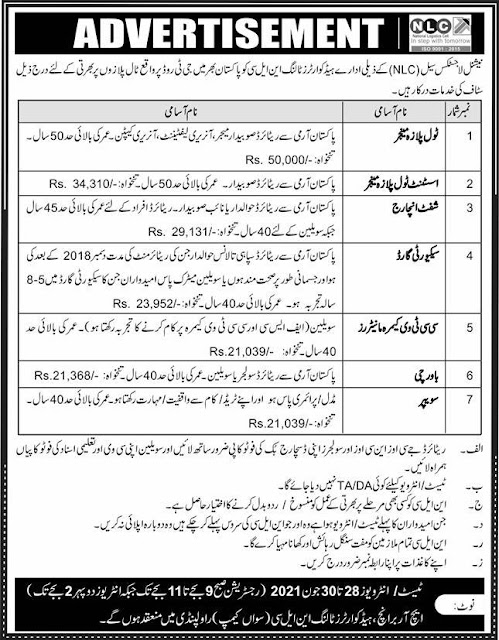 ADVERTISEMENT
NLC
National Logistics Cell
in step with tomorrow
ISO 9001 : 2015
نیشنل لاجسٹکس سیل (NLC) کے ذیلی ادارے ہیڈ کوارٹرز ٹالنگ این ایل سی کو پاکستان بھر میں جی ٹی روڈ پر واقع ٹال پلازوں پر بھرتی کے لئے درج ذیل
سٹاف کی خدمات درکار ہیں۔
نمبر شمار نام آسامی نام آسامی
1 ٹول پلازہ منیجر پاکستان آرمی سے ریٹائرڈ صوبیدار میجر، آنریری لیفٹیننٹ، آنریری کیپٹن۔ عمر کی بالائی حد 50 سال۔
تنخواہ: Rs. 50,000/-
2 اسسٹنٹ ٹول پلازہ منیجر پاکستان آرمی سے ریٹائرڈ صوبیدار۔ عمر کی بالائی حد 50 سال۔ تنخواہ: Rs. 34,310/-
3 شفٹ انچارج پاکستان آرمی سے ریٹائرڈ حوالدار یا نائب صوبیدار۔ ریٹائرڈ افراد کے لئے عمر کی بالائی حد 45 سال
جبکہ سویلین کے لئے 40 سال۔ تنخواہ: Rs. 29,131/-
4 سیکیورٹی گارڈ پاکستان آرمی سے ریٹائرڈ سپاہی تا لانس حوالدار جن کی ریٹائرمنٹ کی مدت دسمبر 2018 کے بعد کی
ہو اور جسمانی طور پر صحت مند ہوں یا سویلین میٹرک پاس امیدواران جن کا سیکیورٹی گارڈ میں 5-8
سالہ تجربہ ہو۔ عمر کی بالائی حد 40 سال۔ تنخواہ: Rs. 23,952/-
5 سی سی ٹی وی کیمرہ مانیٹرز سویلین (ایف ایس سی اور سی سی ٹی وی کیمرہ پر کام کرنے کا تجربہ رکھتا ہو)۔ عمر کی بالائی حد
40 سال۔ تنخواہ: Rs.21,039/-
6 باورچی پاکستان آرمی سے ریٹائرڈ سولجر یا سویلین۔ عمر کی بالائی حد 40 سال۔ تنخواہ: Rs.21,368/-
7 سویپر مڈل/پرائمری پاس ہو اور اپنے ٹریڈ/کام سے واقفیت/مہارت رکھتا ہو۔ عمر کی بالائی حد 40 سال۔ تنخواہ:
Rs.21,039/-
الف۔ ریٹائرڈ جے سی اوز، این سی اوز اور سولجرز اپنی ڈسچارج بک کی فوٹو کاپی ضرور ساتھ لائیں اور سویلین اپنی سی وی اور تعلیمی اسناد کی فوٹو کاپیاں
ہمراہ لائیں۔
ب۔ ٹیسٹ/انٹرویو کیلئے کوئی TA/DA نہیں دیا جائے گا۔
ج۔ این ایل سی کو کسی بھی مرحلے پر بھرتی کے عمل کو منسوخ/ردوبدل کرنے کا اختیار حاصل ہے۔
د۔ جن امیدواران کا پہلے ٹیسٹ/انٹرویو ہوا ہے وہ اور جو این ایل سی کی سروس پہلے کر چکے ہیں وہ دوبارہ اپلائی نہ کریں۔
ر۔ این ایل سی تمام ملازمین کو مفت سنگل رہائش اور کھانا مہیا کرے گا۔
ز۔ اپنے کاغذات پر اپنا رابطہ نمبر ضرور درج کریں۔
نوٹ: ٹیسٹ/انٹرویوز 28 تا 30 جون 2021 (رجسٹریشن صبح 9 بجے تا 11 بجے تک جبکہ انٹرویوز دوپہر 2 بجے تک)
ایچ آر برانچ، ہیڈ کوارٹرز ٹالنگ این ایل سی (سواں کیمپ) راولپنڈی میں منعقد ہوں گے۔